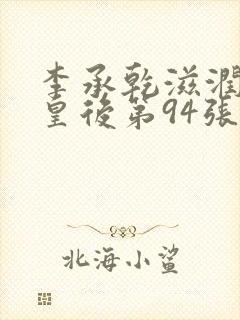 李承乾滋潤
皇後第94張
北海小鯊